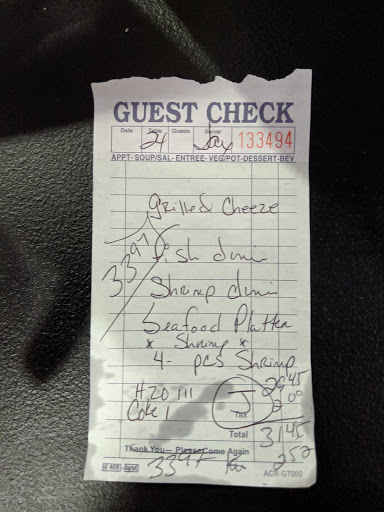 GUEST CHECK
Date Table Guests Server
24 Jay 133494
APPT- SOUP/SAL- ENTREE- VEG/POT-DESSERT-BEV
Grilled Cheeze
Fish dinn
33 97
Shrimp dinn
Seafood Platter
* Shrimp *
4- pcs Shrimp
H20 111 29 45
Coke 1 2 00
Tax
Total 31 45
2 52
Thank You — Please Come Again
3397
ACR-G7000